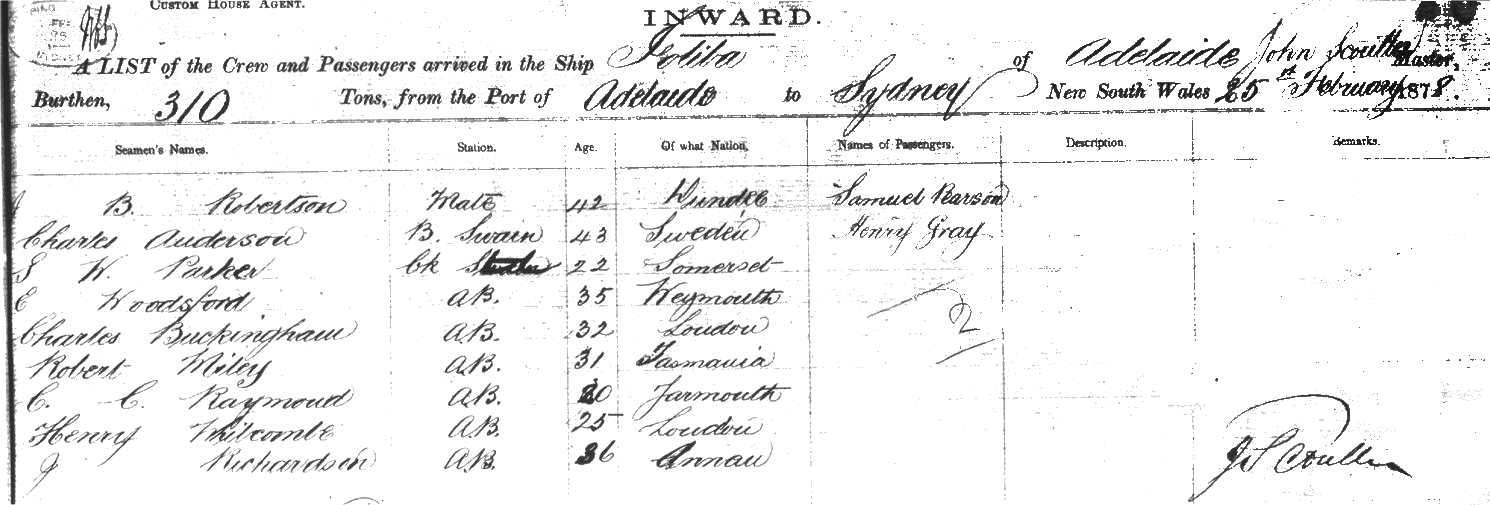 CUSTOM HOUSE AGENT.
INWARD.
A LIST of the Crew and Passengers arrived in the Ship Joliba of Adelaide John Scoullar Master,
Burthen, 310 Tons, from the Port of Adelaide to Sydney New South Wales 25 February 1878.
Seamen's Names. Station. Age. Of what Nation, Names of Passengers. Description. Remarks.
J B. Robertson Mate 42 Dundee Samuel Pearson
Charles Anderson B. Swain 43 Sweden Henry Gray
S W. Parker Ck 22 Somerset
E Woodsford AB. 35 Weymouth
Charles Buckingham AB. 32 London
2
Robert Miley AB. 31 Tasmania
C. C. Raymond AB. 20 Yarmouth
Henry Whitcombe AB. 25 London
J Richardson AB. 36 Annan